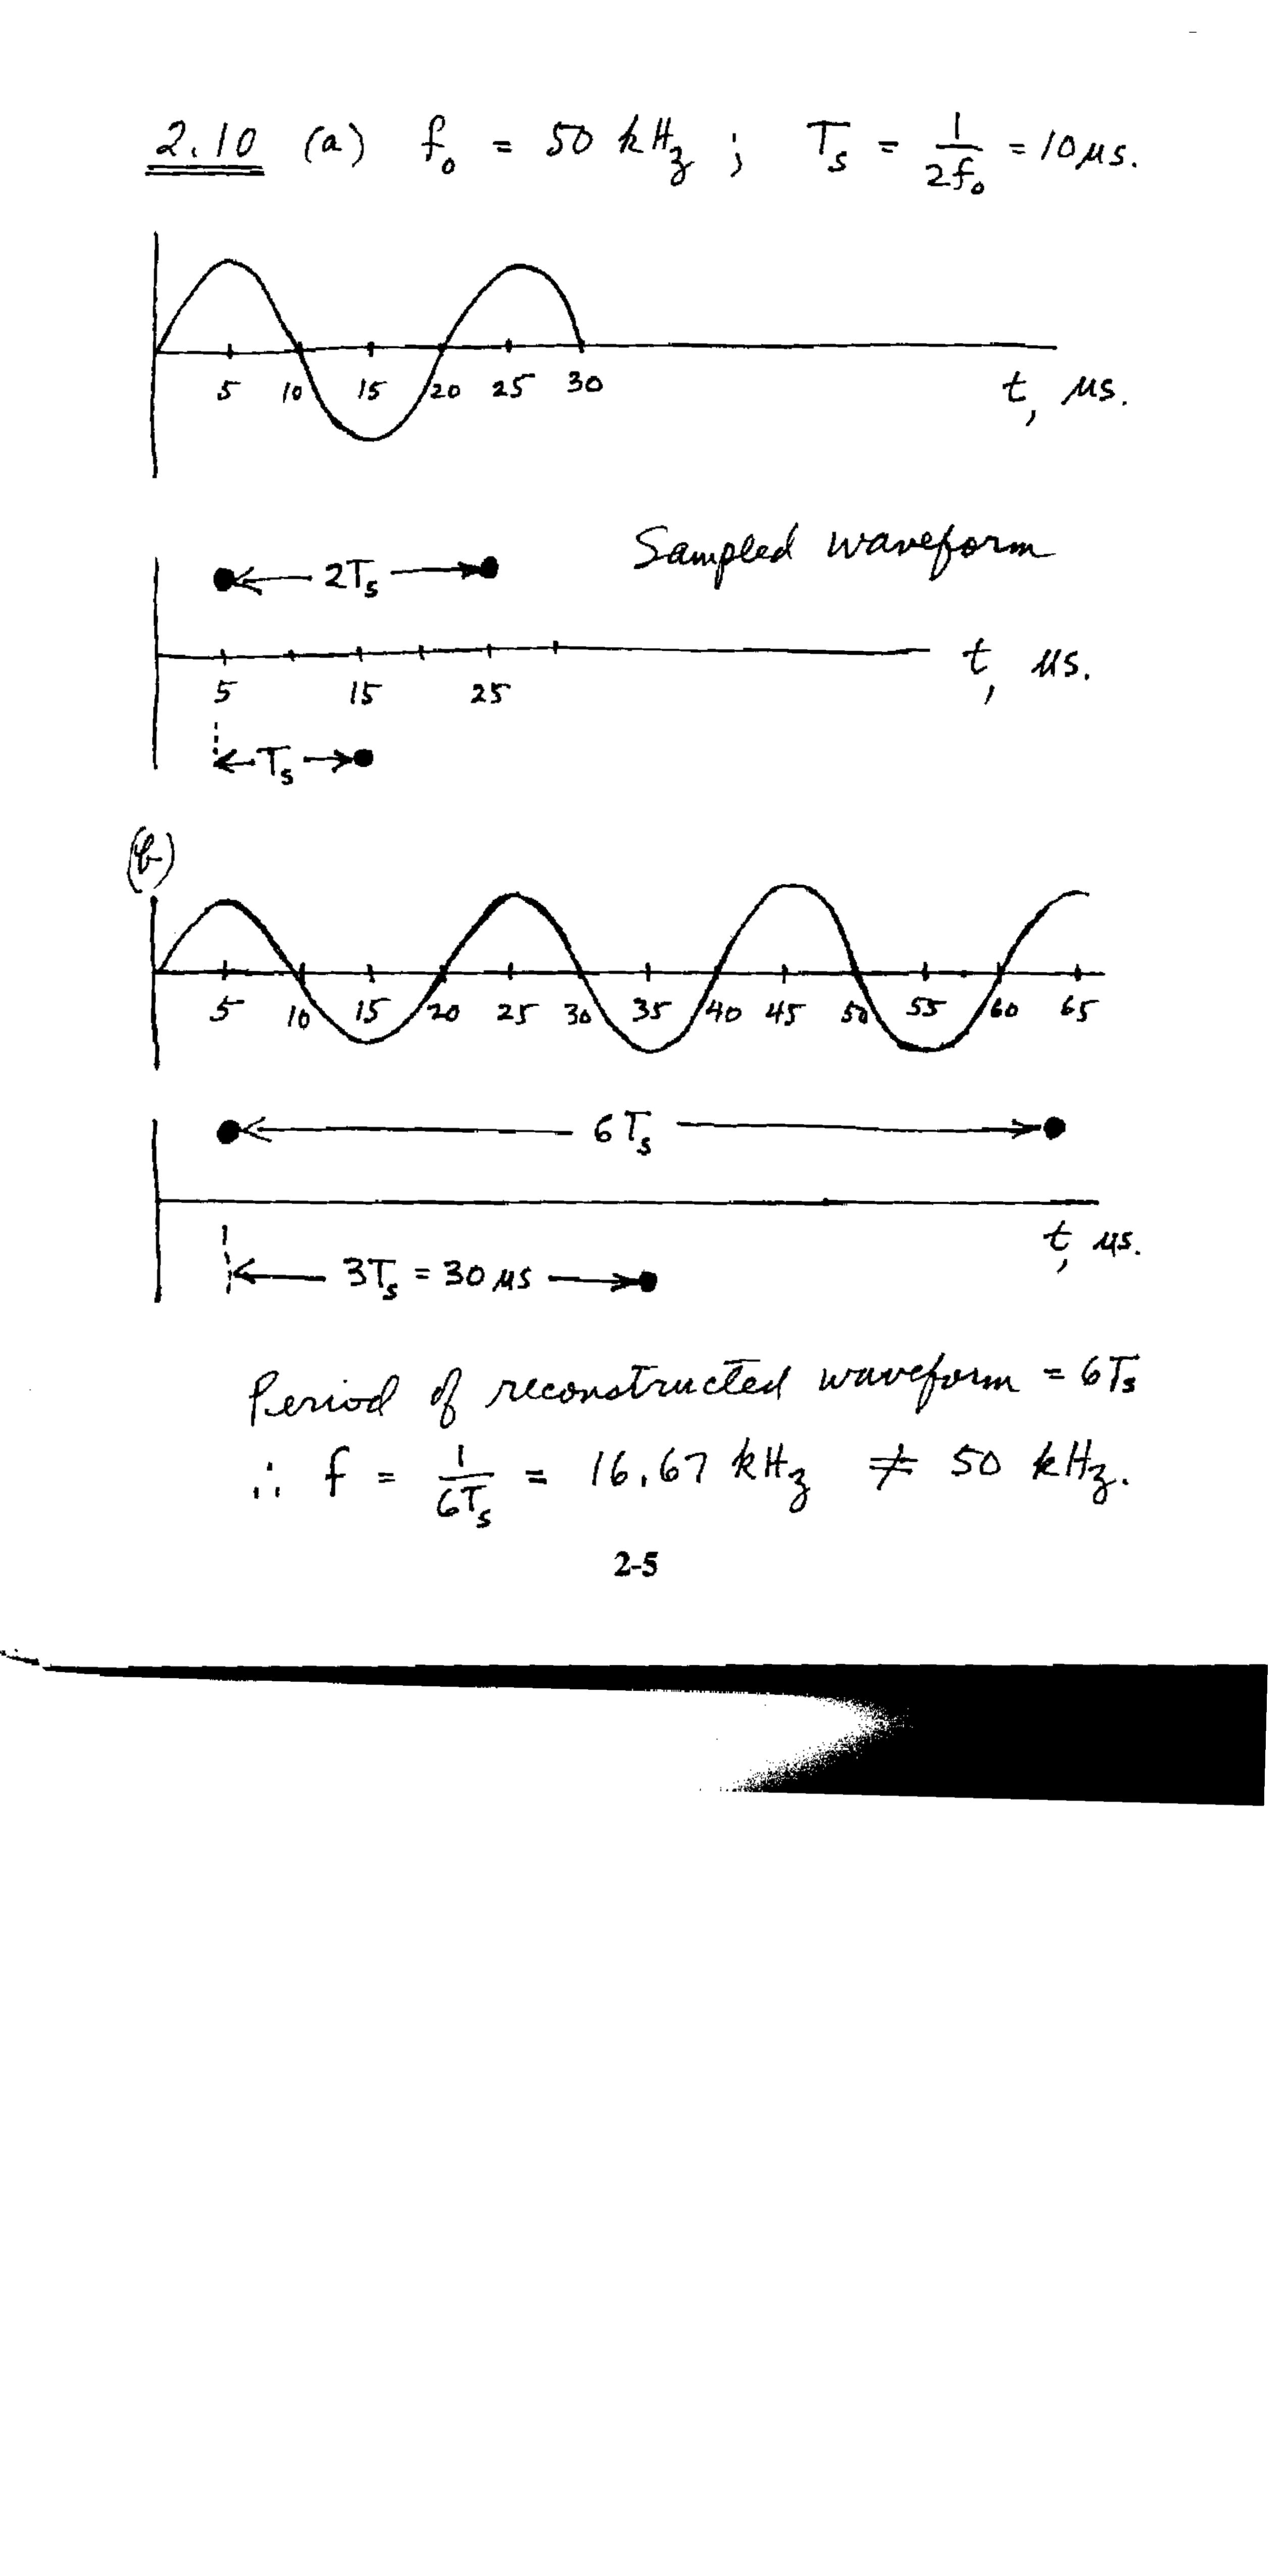 2.10 (a) f₀ = 50 kHz ; Tₛ = 1/2f₀ = 10 μs.
5 10 15 20 25 30 t, μs.
Sampled waveform
2Tₛ
5 15 25 t, μs.
Tₛ
(b)
5 10 15 20 25 30 35 40 45 50 55 60 65
6Tₛ
t, μs.
3Tₛ = 30 μs
Period of reconstructed waveform = 6Tₛ
∴ f = 1/6Tₛ = 16.67 kHz ≠ 50 kHz.
2-5